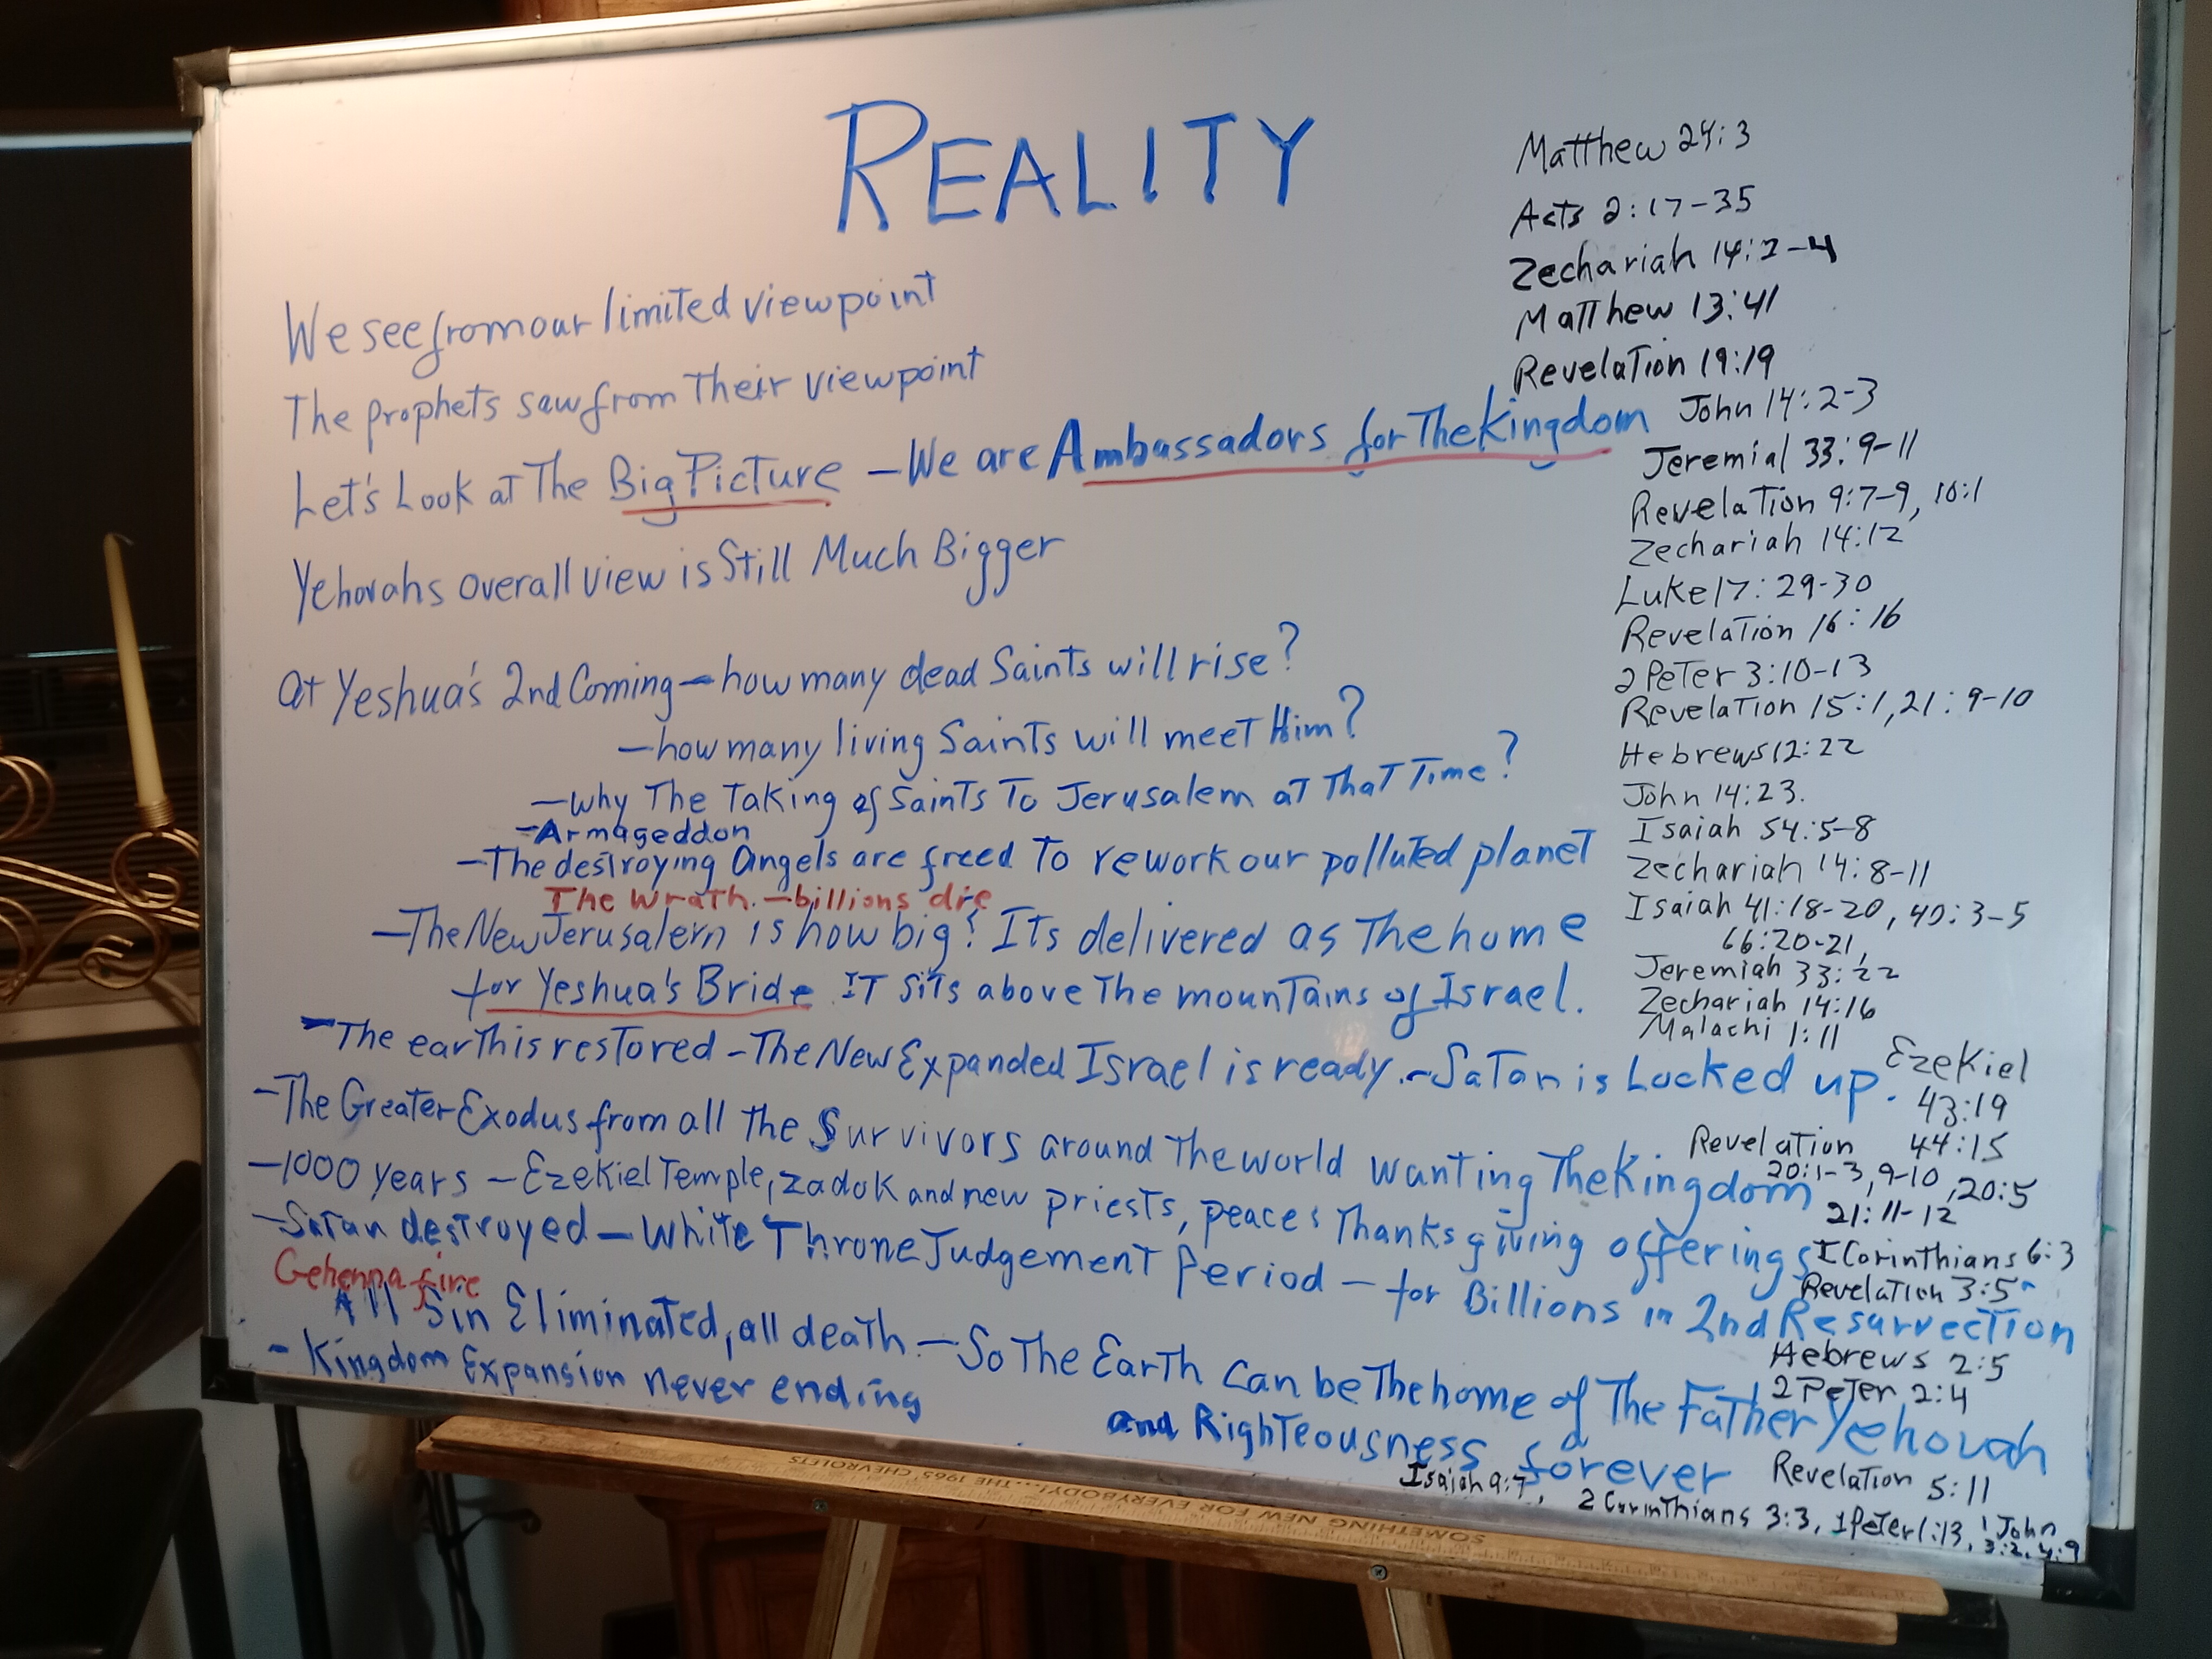 REALITY
We see from our limited viewpoint
The prophets saw from Their viewpoint
Let's Look at The Big Picture - We are Ambassadors for The Kingdom
Yehovahs overall view is Still Much Bigger
at Yeshua's 2nd Coming - how many dead Saints will rise?
- how many living Saints will meet Him?
- why The Taking of Saints To Jerusalem at That Time?
- Armageddon
- The destroying angels are freed To rework our polluted planet
The Wrath - billions die
- The New Jerusalem is how big? Its delivered as The home
for Yeshua's Bride. IT sits above The mountains of Israel.
- The earth is restored - The New Expanded Israel is ready. - Satan is Locked up.
- The Greater Exodus from all The Survivors around The world wanting The Kingdom
- 1000 years - Ezekiel Temple, Zadok and new priests, peace & Thanks giving offerings
- Satan destroyed - White Throne Judgement Period - for Billions in 2nd Resurrection
Gehenna fire
All Sin Eliminated, all death. - So The Earth Can be The home of The Father Yehovah
- Kingdom Expansion never ending
and Righteousness forever
Matthew 24:3
Acts 2:17-35
Zechariah 14:2-4
Matthew 13:41
Revelation 19:19
John 14:2-3
Jeremial 33:9-11
Revelation 9:7-9, 10:1
Zechariah 14:12
Luke 17:29-30
Revelation 16:16
2 Peter 3:10-13
Revelation 15:1, 21:9-10
Hebrews 12:22
John 14:23.
Isaiah 54:5-8
Zechariah 14:8-11
Isaiah 41:18-20, 40:3-5
66:20-21,
Jeremiah 33:22
Zechariah 14:16
Malachi 1:11
Ezekiel
43:19
44:15
Revelation
20:1-3, 9-10, 20:5
21:11-12
I Corinthians 6:3
Revelation 3:5
Hebrews 2:5
2 Peter 2:4
Revelation 5:11
Isaiah 9:7, 2 Corinthians 3:3, 1 Peter 1:13, 1 John
3:2, 4:9
SOMETHING NEW FOR EVERYBODY!... THE 1965 CHEVROLETS